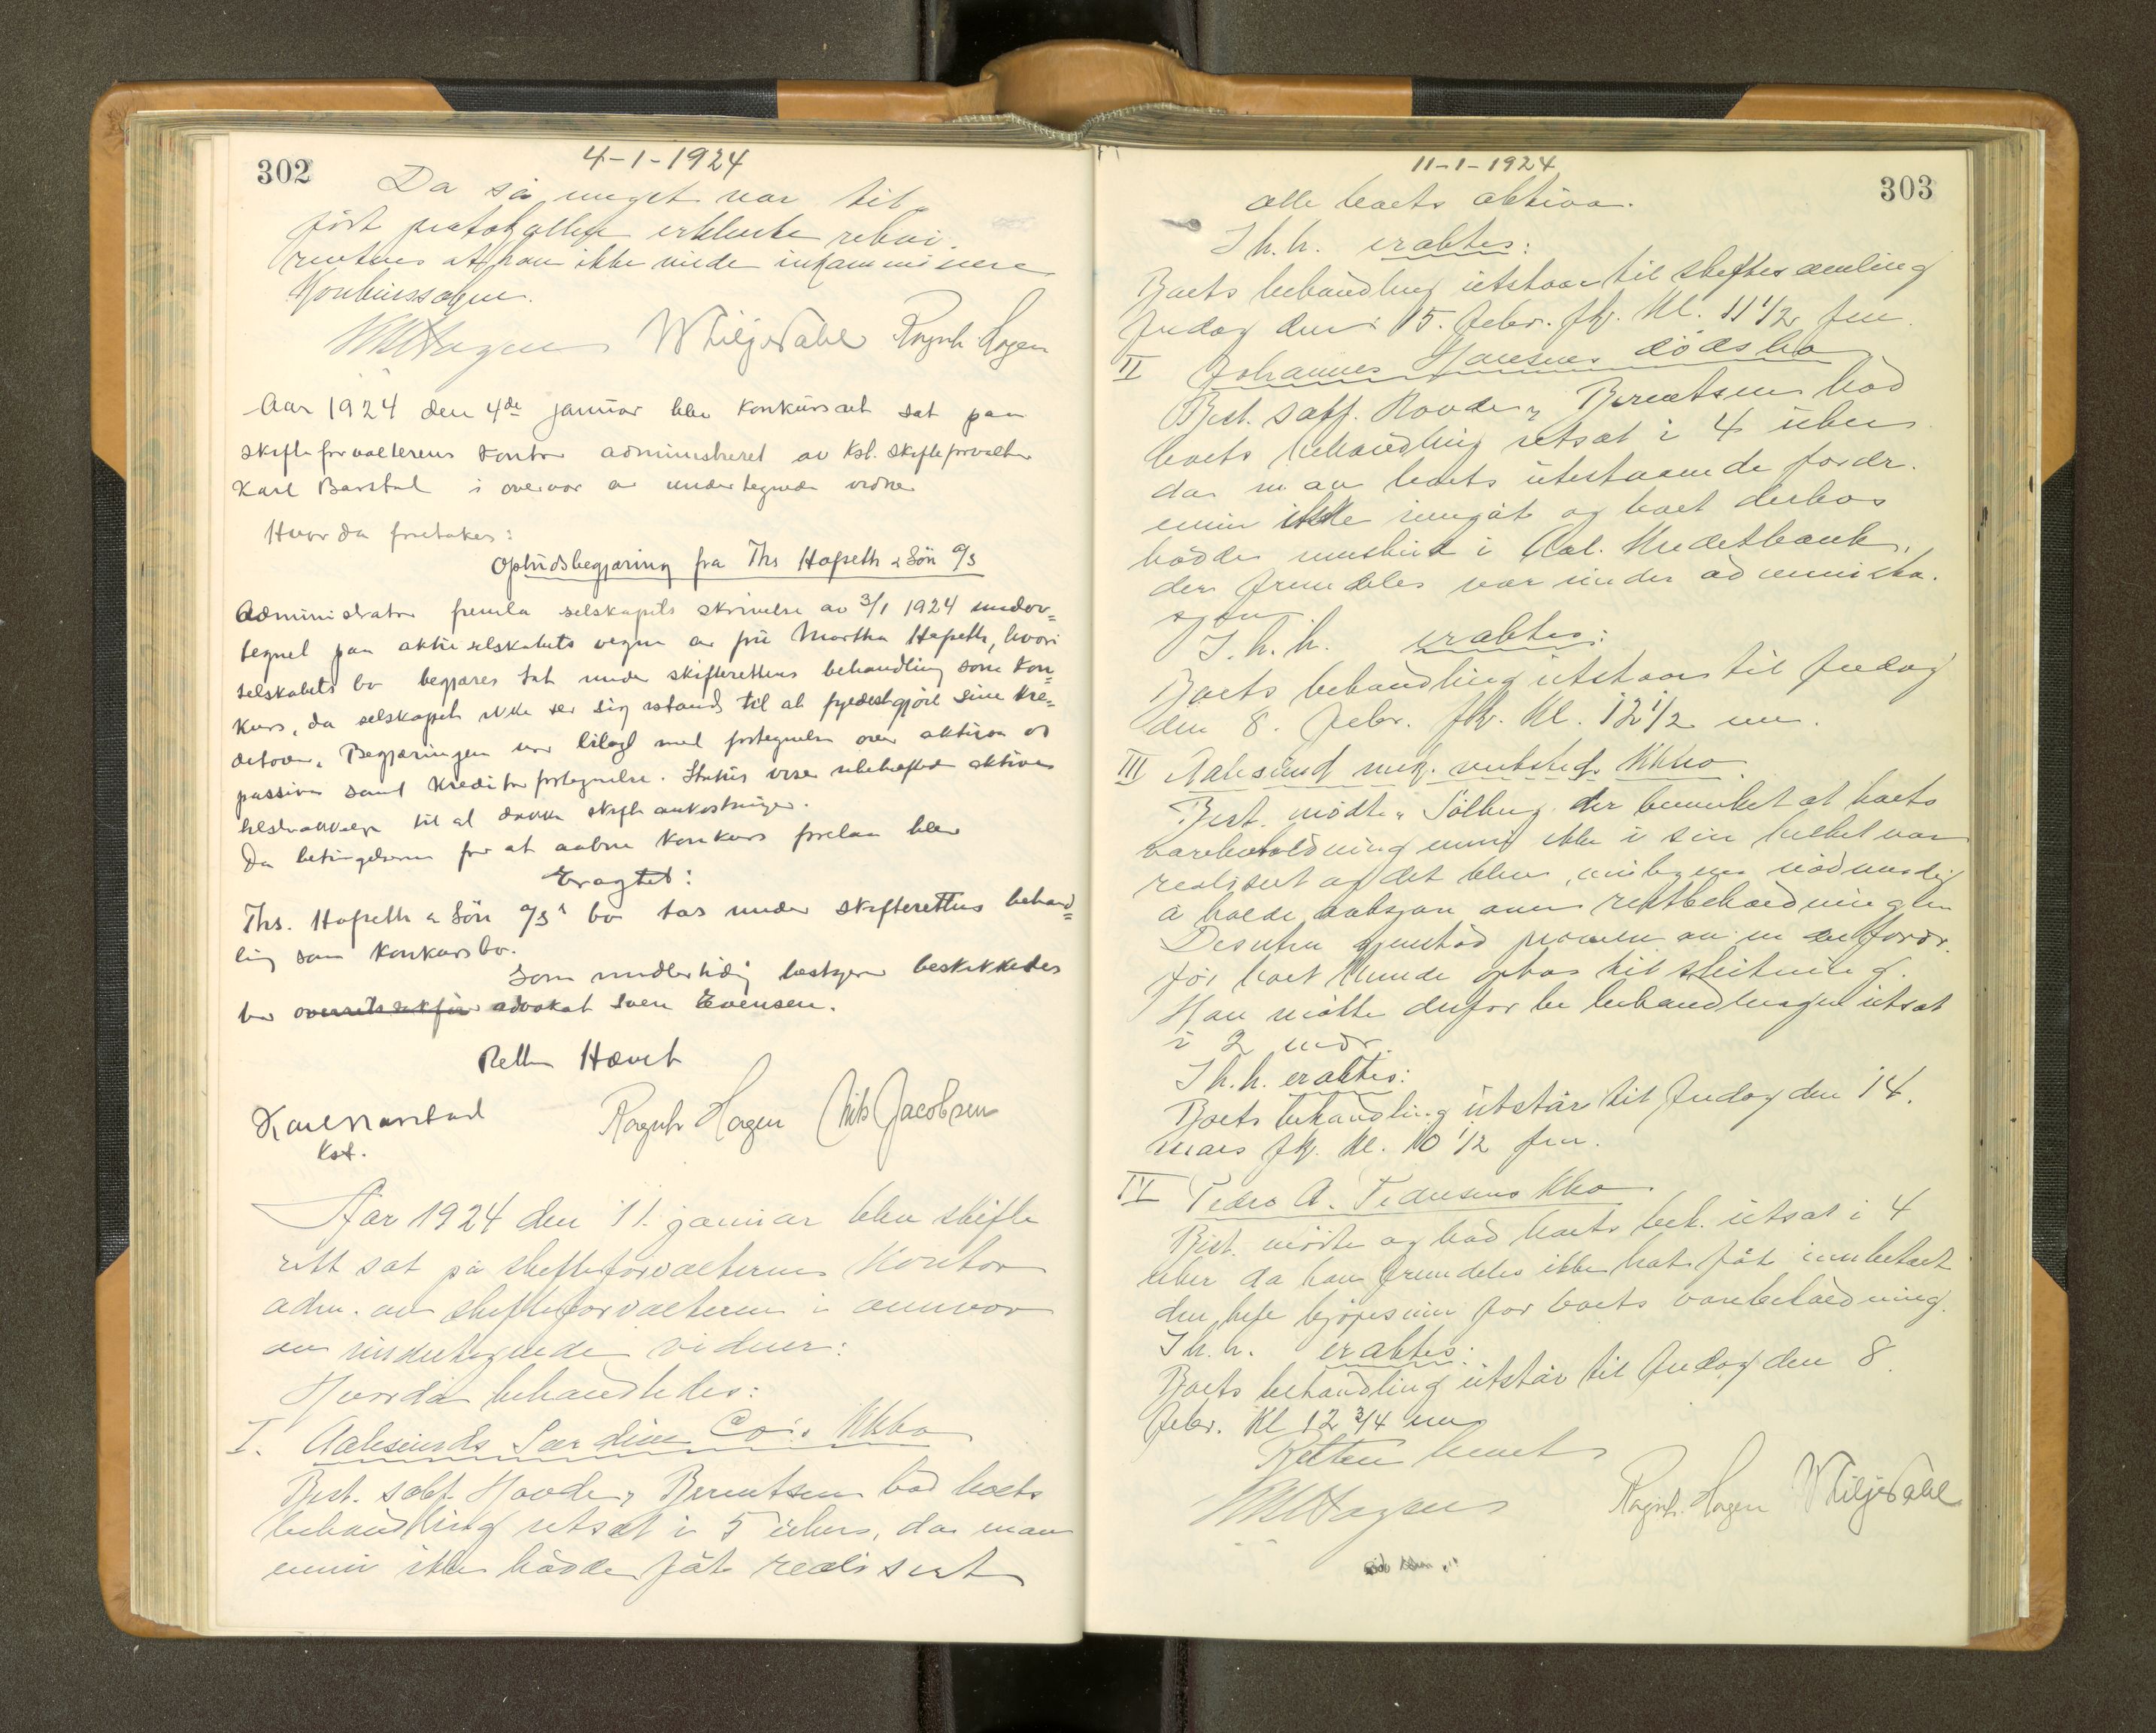 302
4-1-1924
Da så meget var til-
ført protokollen erklærte rekvi-
rentens at han ikke vilde inkamminere
Konkurssaken.
Ragnh. Hagen
Aar 1924 den 4de januar blev konkursret sat paa
skifteforvalterens kontor administreret av Kst. skifteforvalter
Karl Barstad i overvær av undertegnede vidner
Hvor da foretokes:
Opbudsbegjæring fra Ths Hofseth & Sön A/S
Administrator fremla selskapets skrivelse av 3/1 1924 under-
tegnet paa aktieselskabets vegne av fru Martha Hofseth, hvori
selskabets bo begjæres tat under skifterettens behandling som kon-
kurs, da selskapet ikke ser sig istand til at fyldestgjöre sine kre-
ditorer. Begjæringen var bilagt med fortegnelse over aktiva og
passiva samt kreditorfortegnelse. Status viser ubeheftede aktiva
tilstrækkelige til at dække skifteomkostninger.
Da betingelserne for at aabne konkurs forelaa blev
Eragtet:
Ths. Hofseth & Sön A/Ss bo tas under skifterettens behand-
ling som konkursbo.
Som midlertidig bestyrer beskikkedes
advokat Sven Evensen.
Retten Hævet
Karl Barstad
Kst.
Ragnh Hagen Nils Jacobsen
Aar 1924 den 11. januar blev skifte
rett sat på skifteforvalterens kontor
adm. av skifteforvalteren i overvær
av undertegnede vidner:
Hvorda behandledes:
I. Aalesunds Sardine Co.s Kkbo
Best. sakf. Hovde & Berentsen bad boets
behandling utsat i 5 uker, da man
ennu ikke hadde fåt realisert
11-1-1924
303
alle boets aktiva.
I h.h. eraktes:
Boets behandling utstaar til skiftesamling
fredag den 15. febr. fk. kl. 11 1/2 fm.
II Johannes Hansens dödsbo
Best. sakf. Hovde & Berentsen bad
boets behandling utsat i 4 uker
da man boets utestaaende fordr.
ennu ikke inngåt og boet derhos
hadde innskud i Aal. Kreditbank,
der fremdeles var under administra-
sjon.
I.h.h. eraktes:
Boets behandling utstaar til fredag
den 8. febr. fk. kl. 12 1/2 em.
III Aalesund mek. verksteds Kkbo
Best. mödte, Solberg der bemerket at boets
varebeholdning ennu ikke i sin helhet var
realisert og det blev nödvendig
å holde auksjon over restbeholdningen
Desuten gjenstod av en del fordr.
før boet kunde optas til slutning.
Han måtte derfor be behandlingen utsat
i 2 mdr.
I h.h. eraktes:
Boets behandling utstår til fredag den 14.
mars fk. kl. 10 1/2 fm.
IV Peder A. Pedersens Kbo.
Best. mödte og bad boets beh. utsat i 4
uker da han fremdeles ikke hat fåt innbetalt
den hele kjöpesum for boets varebeholdning.
I h.h. eraktes:
Boets behandling utstår til fredag den 8.
febr. Kl 12 3/4 em
Retten hevet
Ragnh. Hagen